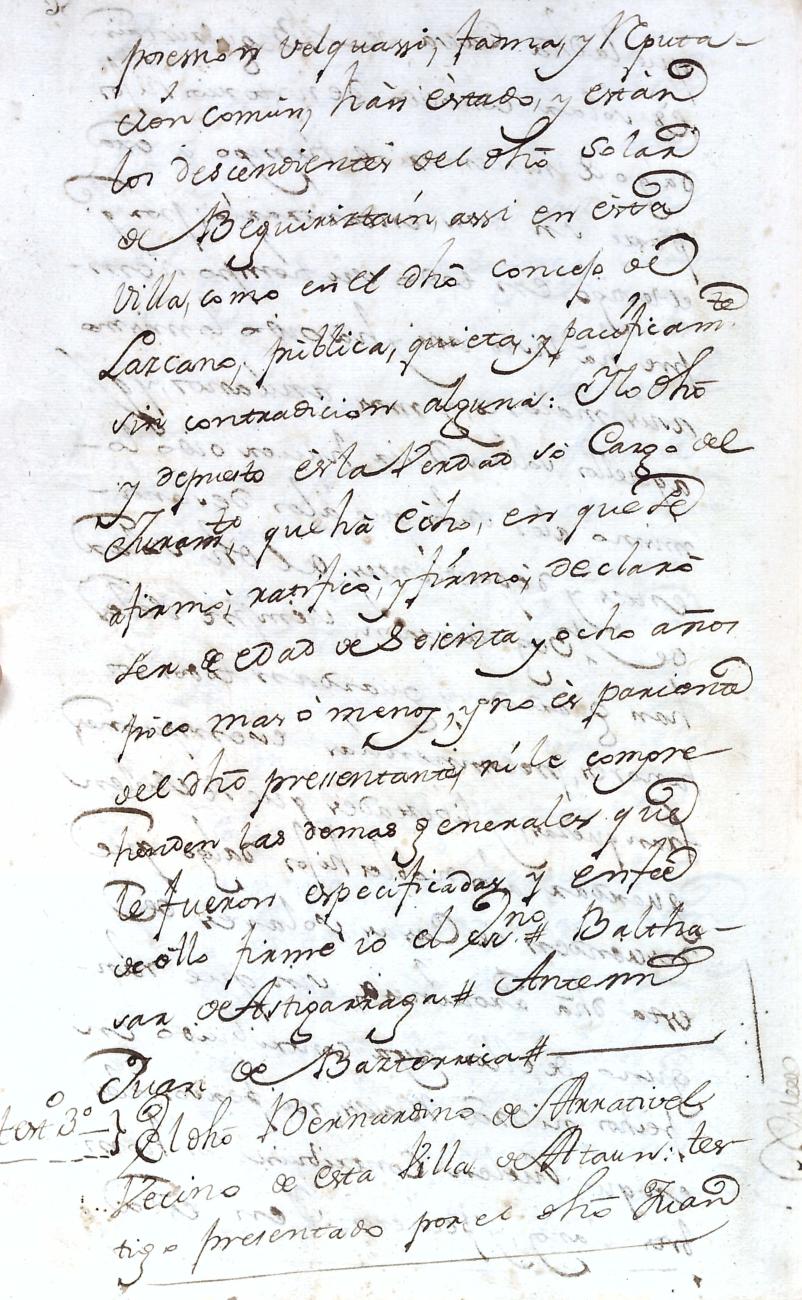 possession velquassi, fama, y Reputa-
ción común, hàn èstado, y estàn
los descendientes del dho Solar
de Beguiriztain, assi en èsta
Villa, como en el dho concejo de
Lazcano, pùblica, quieta, y pacificamte
sin contradicion alguna: Ylo dho
y depuesto ès la Verdad so Cargo del
Juramto, que hà Echo, en que se
afirmò, ratificò, y firmò, declarò
ser de edad de Sesenta y ocho años
poco mas ò menos, y no ès pariente
del dho pressentante, ni le compre
henden las demas generalès que
le fueron especificadas y enfee
de ello firmè io el Esno # Baltha-
sar de Astigarraga # Antemi
Juan de Bazterrica #
testo 3o } El dho Bernardino de Arrativel
Vecino de esta Villa de Ataun: tes-
tigo presentado por el dho Juan